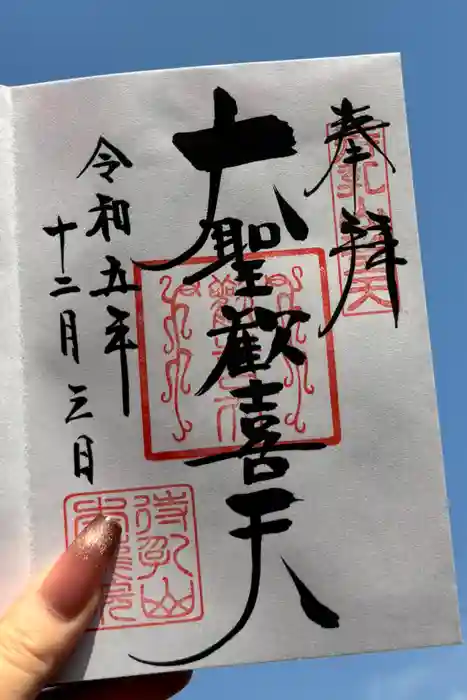 奉拝
大聖歓喜天
令和五年
十二月三日
待乳山